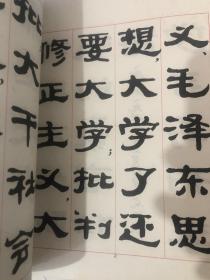 义、毛泽东思
想,大学了还
要大学;批判
修正主义大
批大干社会